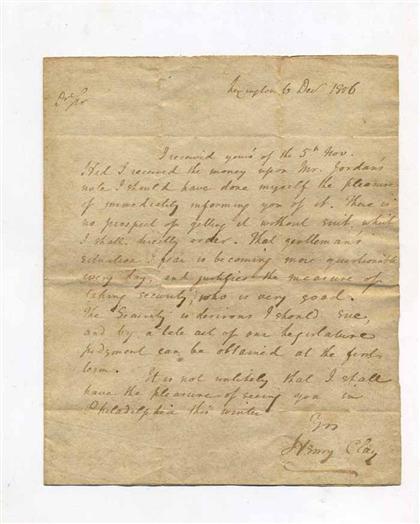 Lexington 6 Decr 1806
Dr Sir
I received your's of the 5th Nov.
Had I received the money upon Mr. Jordan's
note I should have done myself the pleasure
of immediately informing you of it. There is
no prospect of getting it without suit, which
I shall directly order. That gentleman's
situation I fear is becoming more questionable
every day, and justifies the measure of
taking security, who is very good.
The Security is desirous I should sue,
and by a late act of our legislature
judgment can be obtained at the first
term.
It is not unlikely that I shall
have the pleasure of seeing you in
Philadelphia this winter
Yrs
Henry Clay